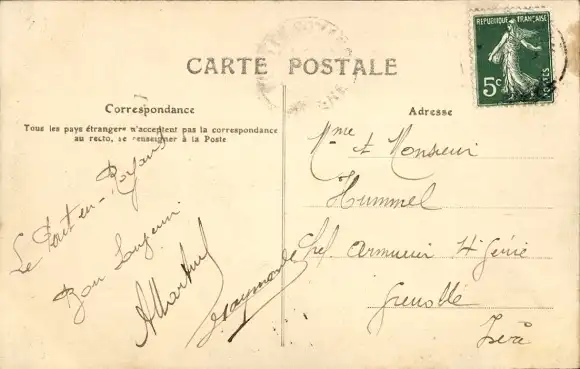 CARTE POSTALE
RÉPUBLIQUE FRANÇAISE
5c
POSTES
Correspondance
Tous les pays étrangers n'acceptent pas la correspondance
au recto, se renseigner à la Poste
Le Pont-en-Royans
Bon
Raymonde
Adresse
Mme et Monsieur
Hummel
Chef armurier 4e Génie
Grenoble
Isère